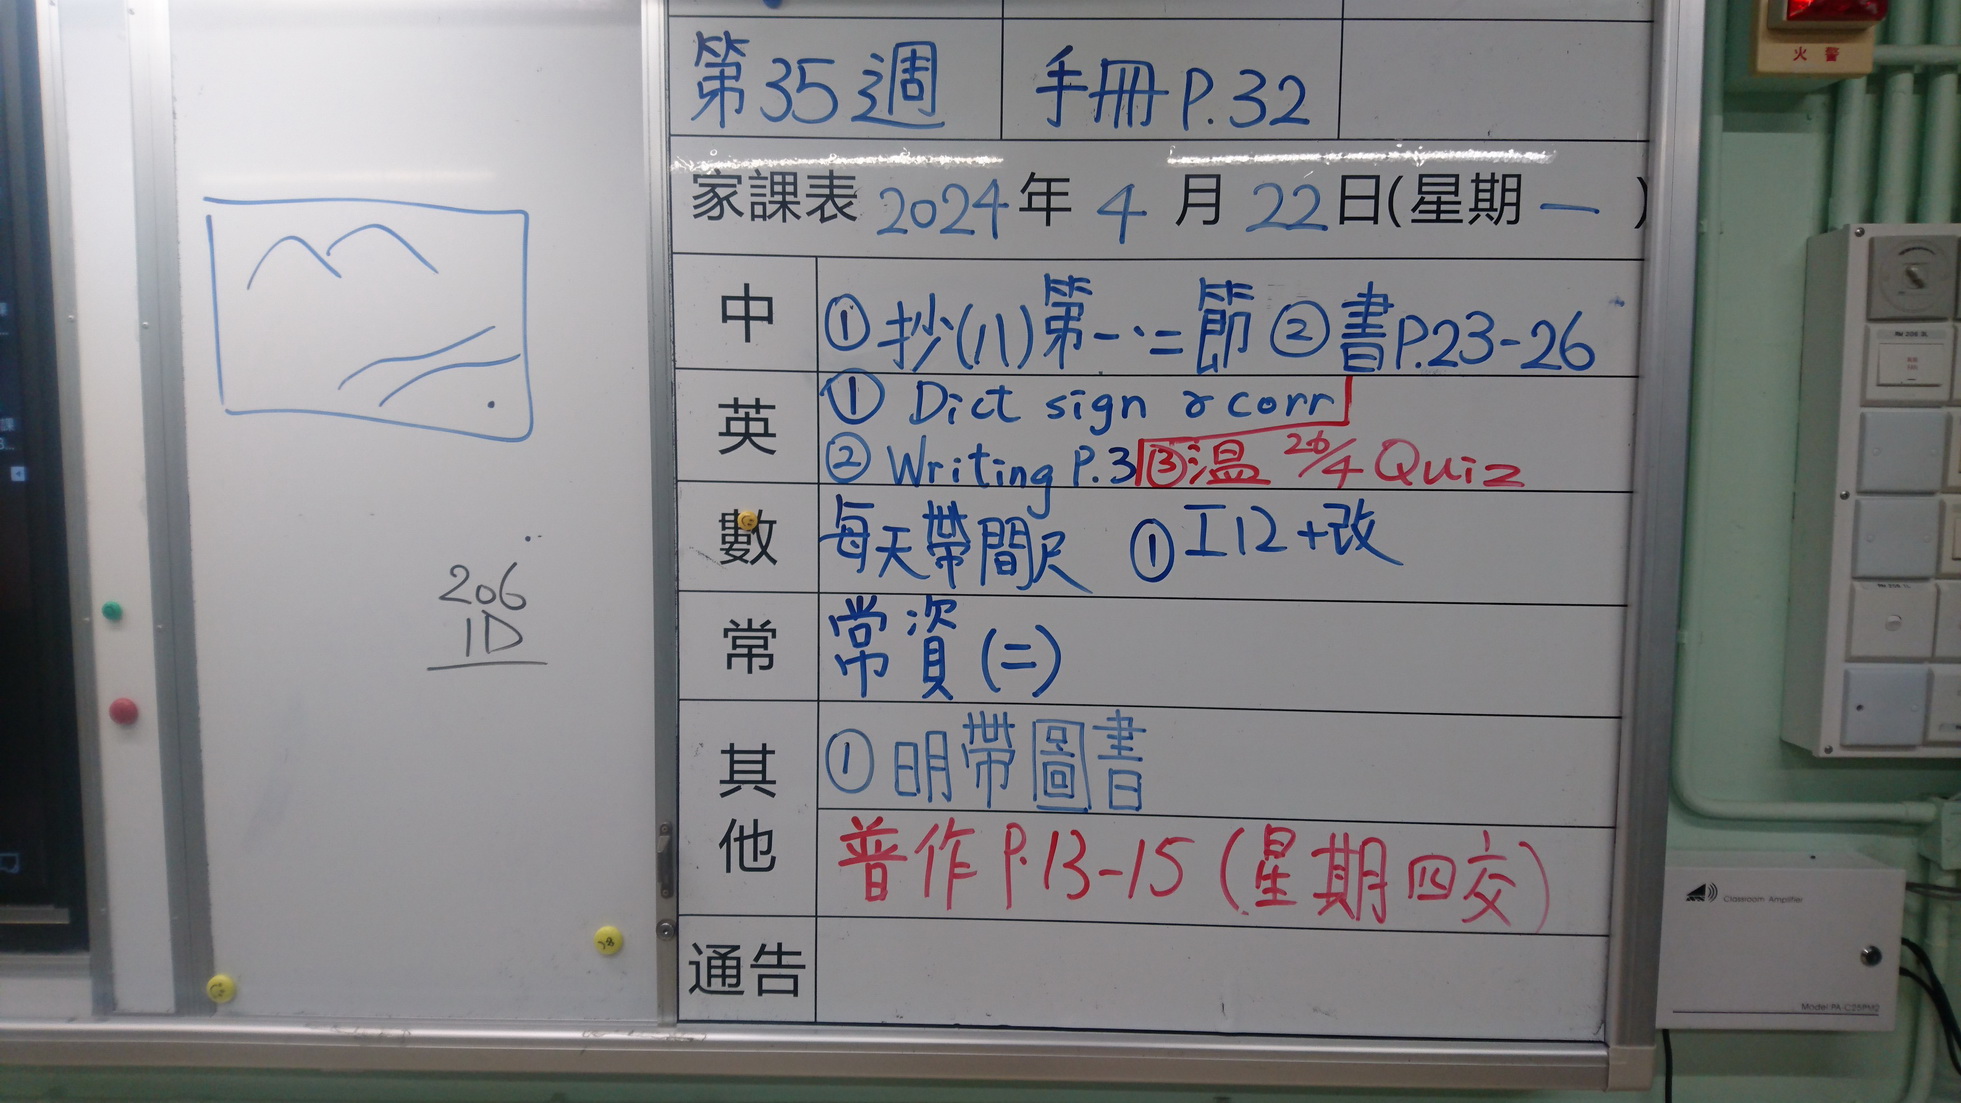 第35週 手冊 P.32
家課表 2024年 4月 22日(星期一)
中 ①抄(八)第一、二節 ②書P.23-26
英 ① Dict sign & corr
② Writing P.3 ③溫 26/4 Quiz
數 每天帶間尺 ① 工12+改
常 常資(二)
其他 ① 明帶圖書
普作 P.13-15 (星期四交)
通告
206
1D
火警
Classroom Amplifier
Model PA-C25PM2